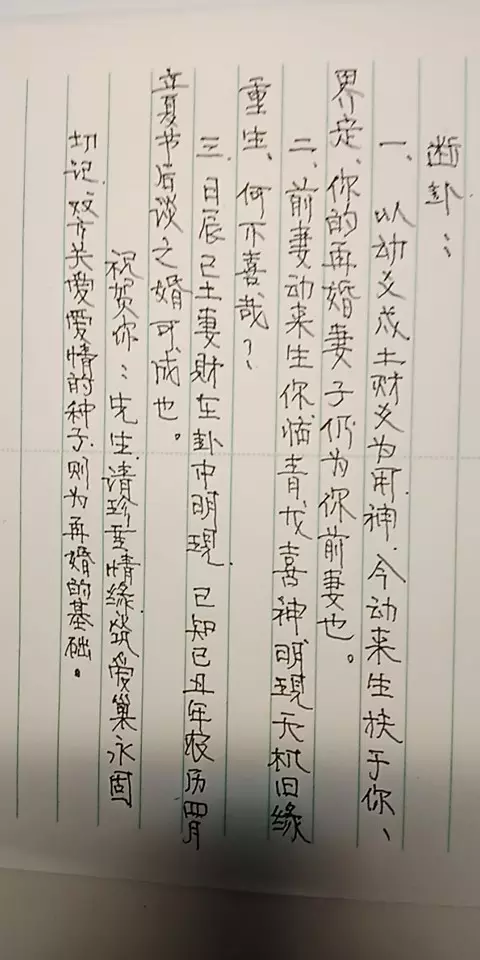 断卦：
一、以动爻戌土财爻为用神.今动来生扶于你、
界定、你的再婚妻子仍为你前妻也。
二、前妻动来生你临青戊喜神明现天机旧缘
重生、何不喜哉？
三.日辰己土妻财在卦中明现.已知己丑年农历四月
立夏节后谈之婚可成也。
祝贺你：先生.请珍重情缘.筑爱巢永固
切记.双方关爱爱情的种子.则为再婚的基础。